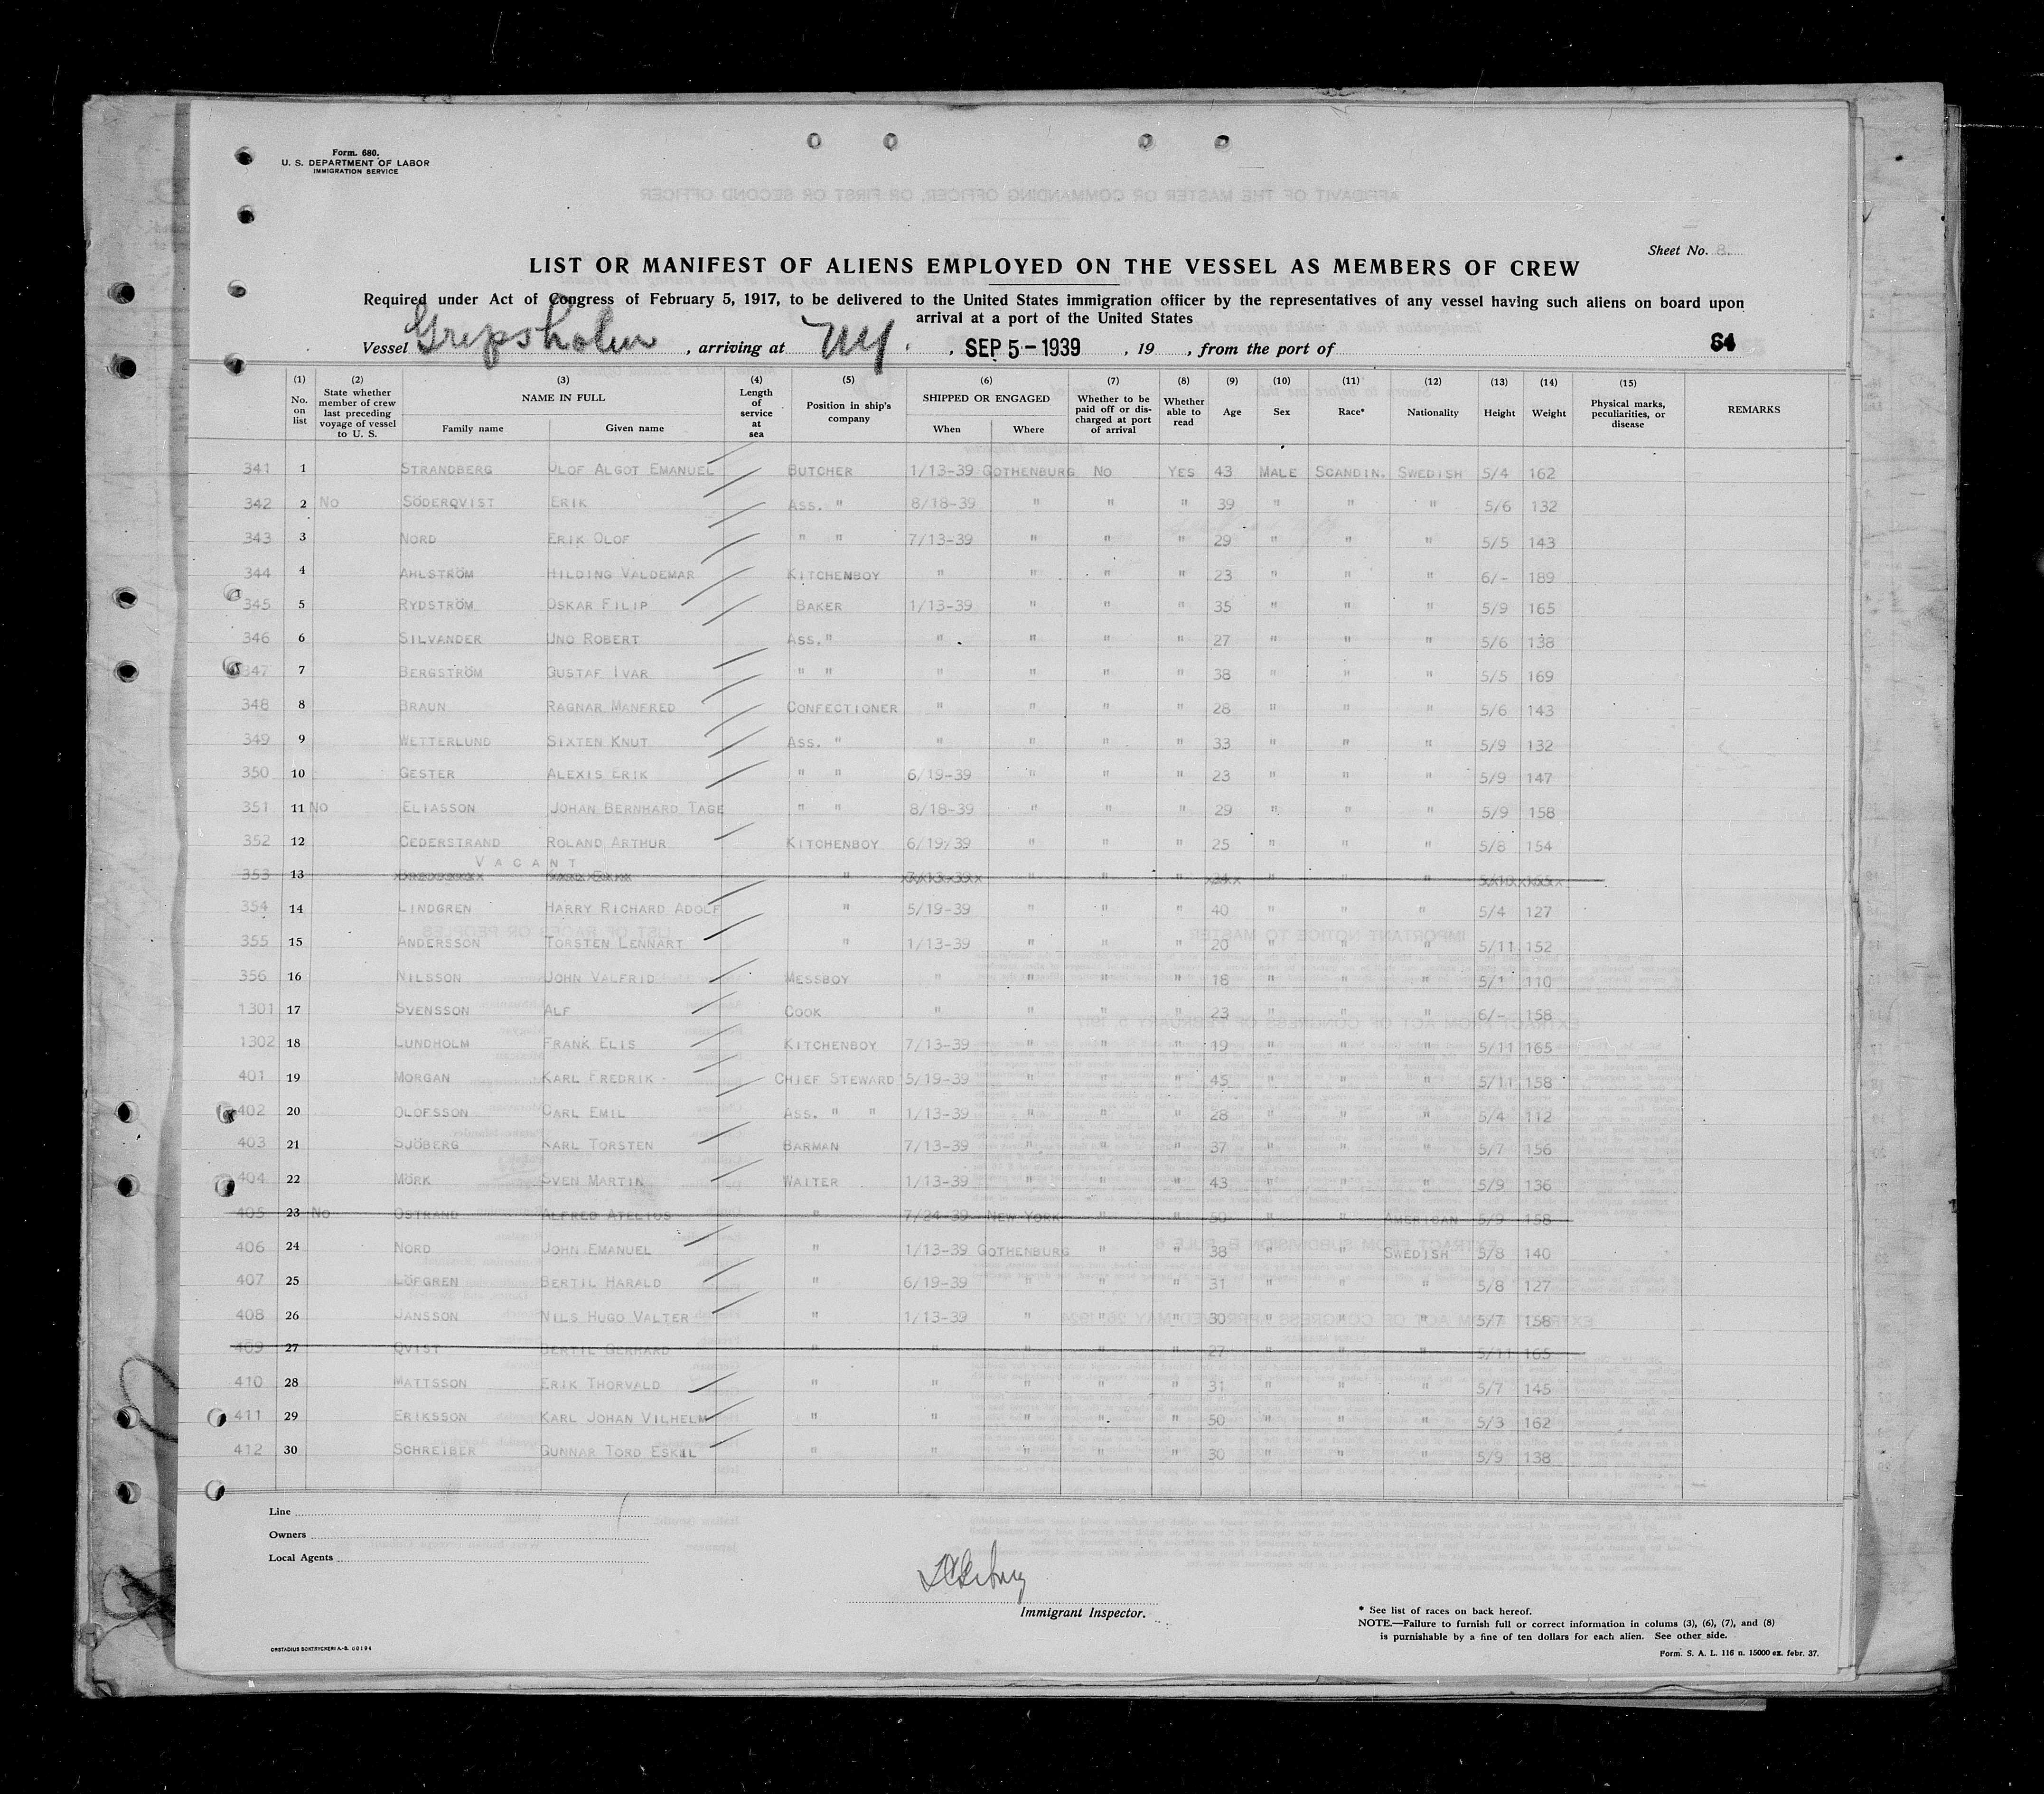 Form. 680.
U. S. DEPARTMENT OF LABOR
IMMIGRATION SERVICE
Sheet No. 8
LIST OR MANIFEST OF ALIENS EMPLOYED ON THE VESSEL AS MEMBERS OF CREW
Required under Act of Congress of February 5, 1917, to be delivered to the United States immigration officer by the representatives of any vessel having such aliens on board upon
arrival at a port of the United States
Vessel Gripsholm, arriving at NY., SEP 5-1939, 19 , from the port of 64
(1) No. on list (2) State whether member of crew last preceding voyage of vessel to U. S. (3) NAME IN FULL Family name Given name (4) Length of service at sea (5) Position in ship's company (6) SHIPPED OR ENGAGED When Where (7) Whether to be paid off or discharged at port of arrival (8) Whether able to read (9) Age (10) Sex (11) Race* (12) Nationality (13) Height (14) Weight (15) Physical marks, peculiarities, or disease REMARKS
341 1 STRANDBERG OLOF ALGOT EMANUEL BUTCHER 1/13-39 GOTHENBURG NO YES 43 MALE SCANDIN. SWEDISH 5/4 162
342 2 NO SÖDERQVIST ERIK ASS. " 8/18-39 " " " 39 " " " 5/6 132
343 3 NORD ERIK OLOF " " 7/13-39 " " " 29 " " " 5/5 143
344 4 AHLSTRÖM HILDING VALDEMAR KITCHENBOY " " " " 23 " " " 6/- 189
345 5 RYDSTRÖM OSKAR FILIP BAKER 1/13-39 " " " 35 " " " 5/9 165
346 6 SILVANDER UNO ROBERT ASS." " " " " 27 " " " 5/6 138
347 7 BERGSTRÖM GUSTAF IVAR " " " " " " 38 " " " 5/5 169
348 8 BRAUN RAGNAR MANFRED CONFECTIONER " " " " 28 " " " 5/6 143
349 9 WETTERLUND SIXTEN KNUT ASS. " " " " " 33 " " " 5/9 132
350 10 GESTER ALEXIS ERIK " " 6/19-39 " " " 23 " " " 5/9 147
351 11 NO ELIASSON JOHAN BERNHARD TAGE " " 8/18-39 " " " 29 " " " 5/9 158
352 12 CEDERSTRAND ROLAND ARTHUR KITCHENBOY 6/19/39 " " " 25 " " " 5/8 154
VACANT
353 13 " " " " " " "
354 14 LINDGREN HARRY RICHARD ADOLF " 5/19-39 " " " 40 " " " 5/4 127
355 15 ANDERSSON TORSTEN LENNART " 1/13-39 " " " 20 " " " 5/11 152
356 16 NILSSON JOHN VALFRID MESSBOY " " " " 18 " " " 5/1 110
1301 17 SVENSSON ALF COOK " " " " 23 " " " 6/- 158
1302 18 LUNDHOLM FRANK ELIS KITCHENBOY 7/13-39 " " " 19 " " " 5/11 165
401 19 MORGAN KARL FREDRIK CHIEF STEWARD 5/19-39 " " " 45 " " " 5/11 158
402 20 OLOFSSON CARL EMIL ASS. " " 1/13-39 " " " 28 " " " 5/4 112
403 21 SJÖBERG KARL TORSTEN BARMAN 7/13-39 " " " 37 " " " 5/7 156
404 22 MÖRK SVEN MARTIN WAITER 1/13-39 " " " 43 " " " 5/9 136
405 23 NO OSTRAND ALFRED ATELIUS " 7/24-39 NEW YORK " " 50 " " AMERICAN 5/9 158
406 24 NORD JOHN EMANUEL " 1/13-39 GOTHENBURG " " 38 " " SWEDISH 5/8 140
407 25 LÖFGREN BERTIL HARALD " 6/19-39 " " " 31 " " " 5/8 127
408 26 JANSSON NILS HUGO VALTER " 1/13-39 " " " 30 " " " 5/7 158
409 27 QVIST BERTIL GERHARD " " " " " 27 " " " 5/11 165
410 28 MATTSSON ERIK THORVALD " " " " " 31 " " " 5/7 145
411 29 ERIKSSON KARL JOHAN VILHELM " " " " " 50 " " " 5/3 162
412 30 SCHREIBER GUNNAR TORD ESKIL " " " " " 30 " " " 5/9 138
Line
Owners
Local Agents
Immigrant Inspector.
* See list of races on back hereof.
NOTE.—Failure to furnish full or correct information in colums (3), (6), (7), and (8)
is punishable by a fine of ten dollars for each alien. See other side.
ORSTADIUS BOKTRYCKERI A.-B. 00194
Form. S. A. L. 116 n. 15000 ex. febr. 37.